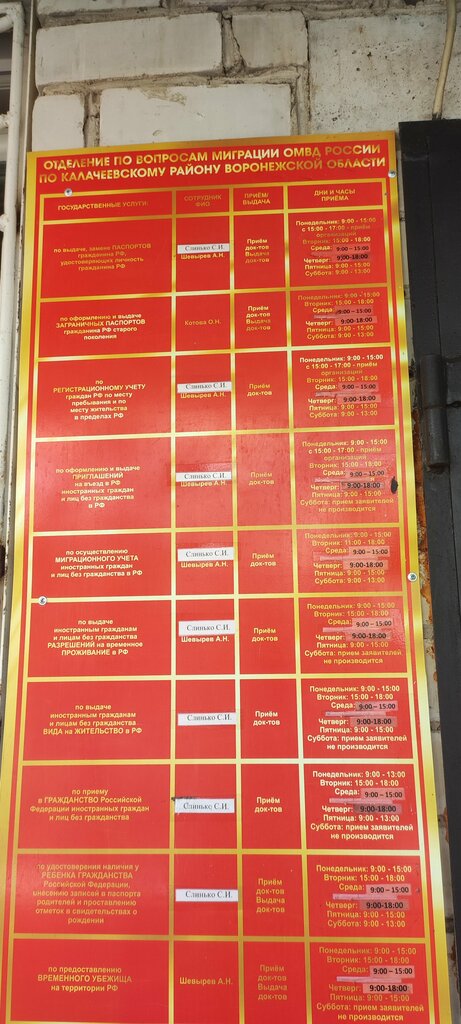 ОТДЕЛЕНИЕ ПО ВОПРОСАМ МИГРАЦИИ ОМВД РОССИИ
ПО КАЛАЧЕЕВСКОМУ РАЙОНУ ВОРОНЕЖСКОЙ ОБЛАСТИ
ГОСУДАРСТВЕННЫЕ УСЛУГИ:
СОТРУДНИК
ФИО
ПРИЁМ/
ВЫДАЧА
ДНИ И ЧАСЫ
ПРИЁМА
по выдаче, замене ПАСПОРТОВ
гражданина РФ,
удостоверяющих личность
гражданина РФ
Слинько С.И.
Шевырев А.Н.
Приём
док-тов
Выдача
док-тов
Понедельник: 9:00 - 15:00
с 15:00 - 17:00 - приём
организаций
Вторник: 15:00 - 18:00
Среда: 9:00 – 15:00
Четверг: 9:00-18:00
Пятница: 9:00 - 15:00
Суббота: 9:00 - 13:00
по оформлению и выдаче
ЗАГРАНИЧНЫХ ПАСПОРТОВ
гражданина РФ старого
поколения
Котова О.Н.
Приём
док-тов
Выдача
док-тов
Понедельник: 9:00 - 15:00
Вторник: 15:00 - 18:00
Среда: 9:00 – 15:00
Четверг: 9:00-18:00
Пятница: 9:00 - 15:00
Суббота: 9:00 - 13:00
по
РЕГИСТРАЦИОННОМУ УЧЕТУ
граждан РФ по месту
пребывания и по
месту жительства
в пределах РФ
Слинько С.И.
Шевырев А.Н.
Приём
док-тов
Понедельник: 9:00 - 15:00
с 15:00 - 17:00 - приём
организаций
Вторник: 15:00 - 18:00
Среда: 9:00 – 15:00
Четверг: 9:00-18:00
Пятница: 9:00 - 15:00
Суббота: 9:00 - 13:00
по оформлению и выдаче
ПРИГЛАШЕНИЙ
на въезд в РФ
иностранных граждан
и лиц без гражданства
в РФ
Слинько С.И.
Шевырев А.Н.
Приём
док-тов
Выдача
док-тов
Понедельник: 9:00 - 15:00
с 15:00 - 17:00 - приём
организаций
Вторник: 15:00 - 18:00
Среда: 9:00 – 15:00
Четверг: 9:00-18:00
Пятница: 9:00 - 15:00
Суббота: прием заявителей
не производится
по осуществлению
МИГРАЦИОННОГО УЧЕТА
иностранных граждан
и лиц без гражданства в РФ
Слинько С.И.
Шевырев А.Н.
Приём
док-тов
Понедельник: 9:00 - 15:00
Вторник: 11:00 - 18:00
Среда: 9:00 – 15:00
Четверг: 9:00-18:00
Пятница: 9:00 - 15:00
Суббота: 9:00 - 13:00
по выдаче
иностранным гражданам
и лицам без гражданства
РАЗРЕШЕНИЙ на временное
ПРОЖИВАНИЕ в РФ
Слинько С.И.
Шевырев А.Н.
Приём
док-тов
Понедельник: 9:00 - 15:00
Вторник: 15:00 - 18:00
Среда: 9:00 – 15:00
Четверг: 9:00-18:00
Пятница: 9:00 - 15:00
Суббота: прием заявителей
не производится
по выдаче
иностранным гражданам
и лицам без гражданства
ВИДА на ЖИТЕЛЬСТВО в РФ
Слинько С.И.
Приём
док-тов
Понедельник: 9:00 - 15:00
Вторник: 15:00 - 18:00
Среда: 9:00 – 15:00
Четверг: 9:00-18:00
Пятница: 9:00 - 15:00
Суббота: прием заявителей
не производится
по приему
в ГРАЖДАНСТВО Российской
Федерации иностранных граждан
и лиц без гражданства
Слинько С.И.
Приём
док-тов
Понедельник: 9:00 - 13:00
Вторник: 15:00 - 18:00
Среда: 9:00 – 15:00
Четверг: 9:00-18:00
Пятница: 9:00 - 13:00
Суббота: прием заявителей
не производится
по удостоверения наличия у
РЕБЕНКА ГРАЖДАНСТВА
Российской Федерации,
внесению записей в паспорта
родителей и проставлению
отметок в свидетельствах о
рождении
Слинько С.И.
Приём
док-тов
Выдача
док-тов
Понедельник: 9:00 - 15:00
Вторник: 15:00 - 18:00
Среда: 9:00 – 15:00
Четверг: 9:00-18:00
Пятница: 9:00 - 15:00
Суббота: 9:00 - 13:00
по предоставлению
ВРЕМЕННОГО УБЕЖИЩА
на территории РФ
Шевырев А.Н.
Приём
док-тов
Выдача
док-тов
Понедельник: 9:00 - 15:00
Вторник: 15:00 - 18:00
Среда: 9:00 – 15:00
Четверг: 9:00-18:00
Пятница: 9:00 - 15:00
Суббота: 9:00 - 13:00